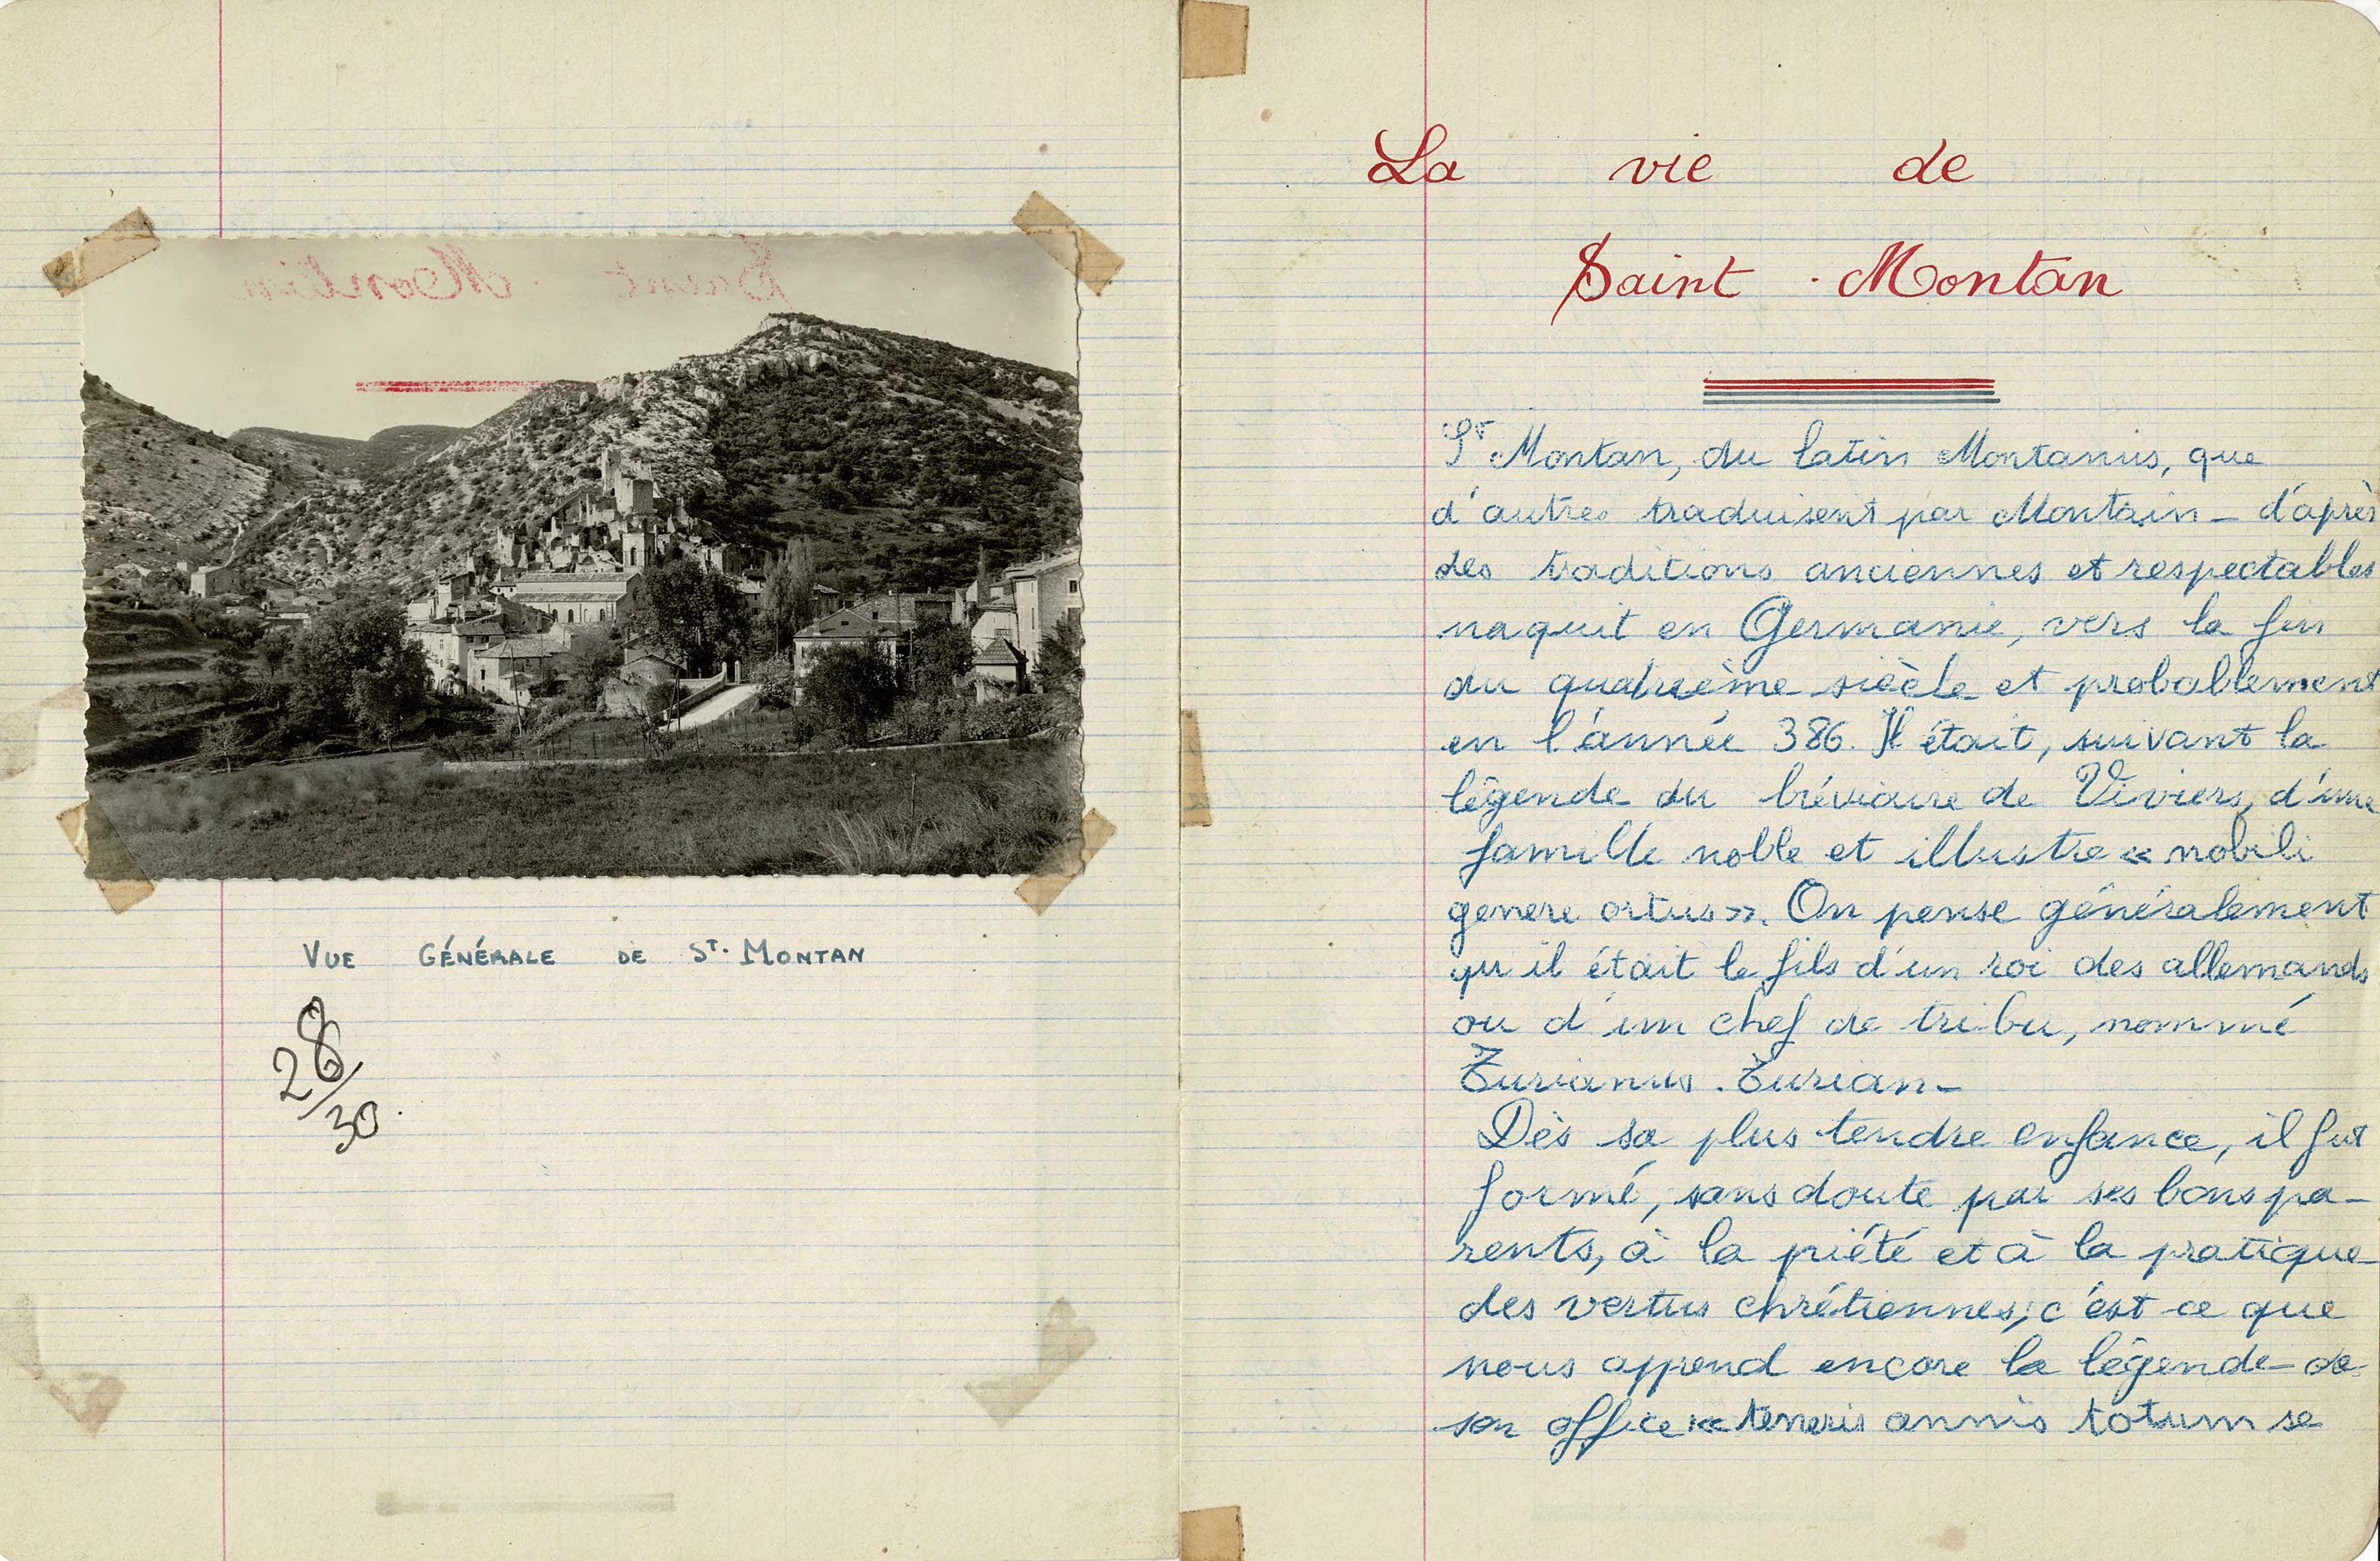 VUE GÉNÉRALE DE ST. MONTAN
28/30.
La vie de
Saint - Montan
St Montan, du latin Montanus, que
d'autres traduisent par Montain - d'après
des traditions anciennes et respectables
naquit en Germanie, vers la fin
du quatrième siècle et probablement
en l'année 386. Il était, suivant la
légende du bréviaire de Viviers, d'une
famille noble et illustre « nobili
genere ortus ». On pense généralement
qu'il était le fils d'un roi des allemands
ou d'un chef de tribu, nommé
Turianus. Turian -
Dès sa plus tendre enfance, il fut
formé, sans doute par ses bons pa-
rents, à la piété et à la pratique
des vertus chrétiennes; c'est ce que
nous apprend encore la légende de
son office « teneris annis totum se